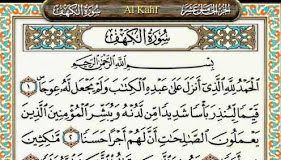 سُورَةُ الكَهْفِ Al-Kahf الجُزْءُ الخَامِسَ عَشَرَ
سُورَةُ الكَهْفِ
بِسْمِ اللَّهِ الرَّحْمَٰنِ الرَّحِيمِ
الْحَمْدُ لِلَّهِ الَّذِي أَنزَلَ عَلَىٰ عَبْدِهِ الْكِتَابَ وَلَمْ يَجْعَل لَّهُ عِوَجًا ١
قَيِّمًا لِّيُنذِرَ بَأْسًا شَدِيدًا مِّن لَّدُنْهُ وَيُبَشِّرَ الْمُؤْمِنِينَ الَّذِينَ
يَعْمَلُونَ الصَّالِحَاتِ أَنَّ لَهُمْ أَجْرًا حَسَنًا ٢ مَّاكِثِينَ